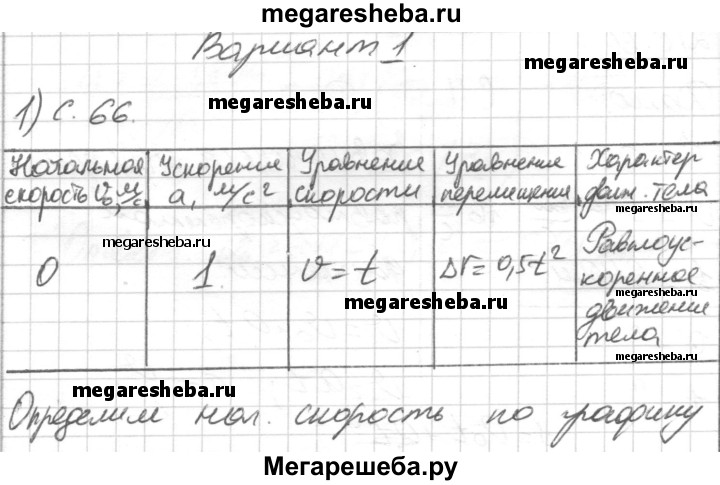 megaresheba.ru
Вариант 1
megaresheba.ru
1) С. 66.
Начальная скорость V₀, м/с | Ускорение a, м/с² | Уравнение скорости | Уравнение перемещения | Характер движ. тела
megaresheba.ru
megaresheba.ru
0 | 1 | v = t | Δr = 0,5t² | Равноускоренное движение тела
megaresheba.ru
megaresheba.ru
megaresheba.ru
megaresheba.ru
Определим нач. скорость по графику
Мегарешеба.ру